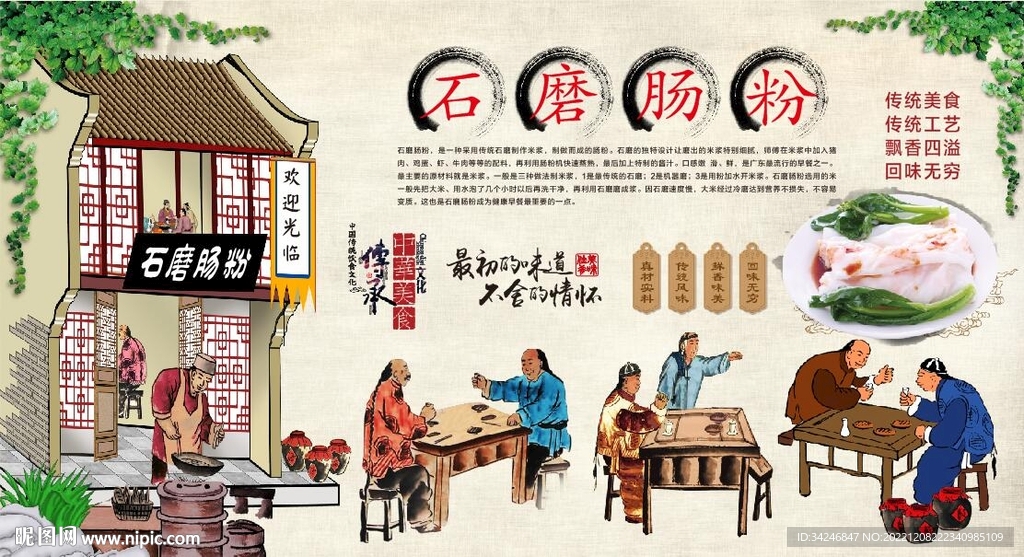 石磨肠粉
石磨肠粉，是一种采用传统石磨制作米浆，制做而成的肠粉。石磨的独特设计让磨出的米浆特别细腻，师傅在米浆中加入猪
肉、鸡蛋、虾、牛肉等等的配料，再利用肠粉机快速蒸熟，最后加上特制的酱汁。口感嫩 滑、鲜，是广东最流行的早餐之一。
最主要的原材料就是米浆。一般是三种做法制米浆，1是最传统的石磨；2是机器磨；3是用粉加水开米浆。石磨肠粉选用的米
一般先把大米、用水泡了几个小时以后再洗干净，再利用石磨磨成浆。因石磨速度慢，大米经过冷磨达到营养不损失，不容易
变质。这也是石磨肠粉成为健康早餐最重要的一点。
传统美食
传统工艺
飘香四溢
回味无穷
欢迎光临
石磨肠粉
中国传统饮食文化
传承
中华美食
最初的味道
不舍的情怀
真材实料
传统风味
鲜香味美
回味无穷
昵图网 www.nipic.com
ID:34246847 NO:20221208222340985109